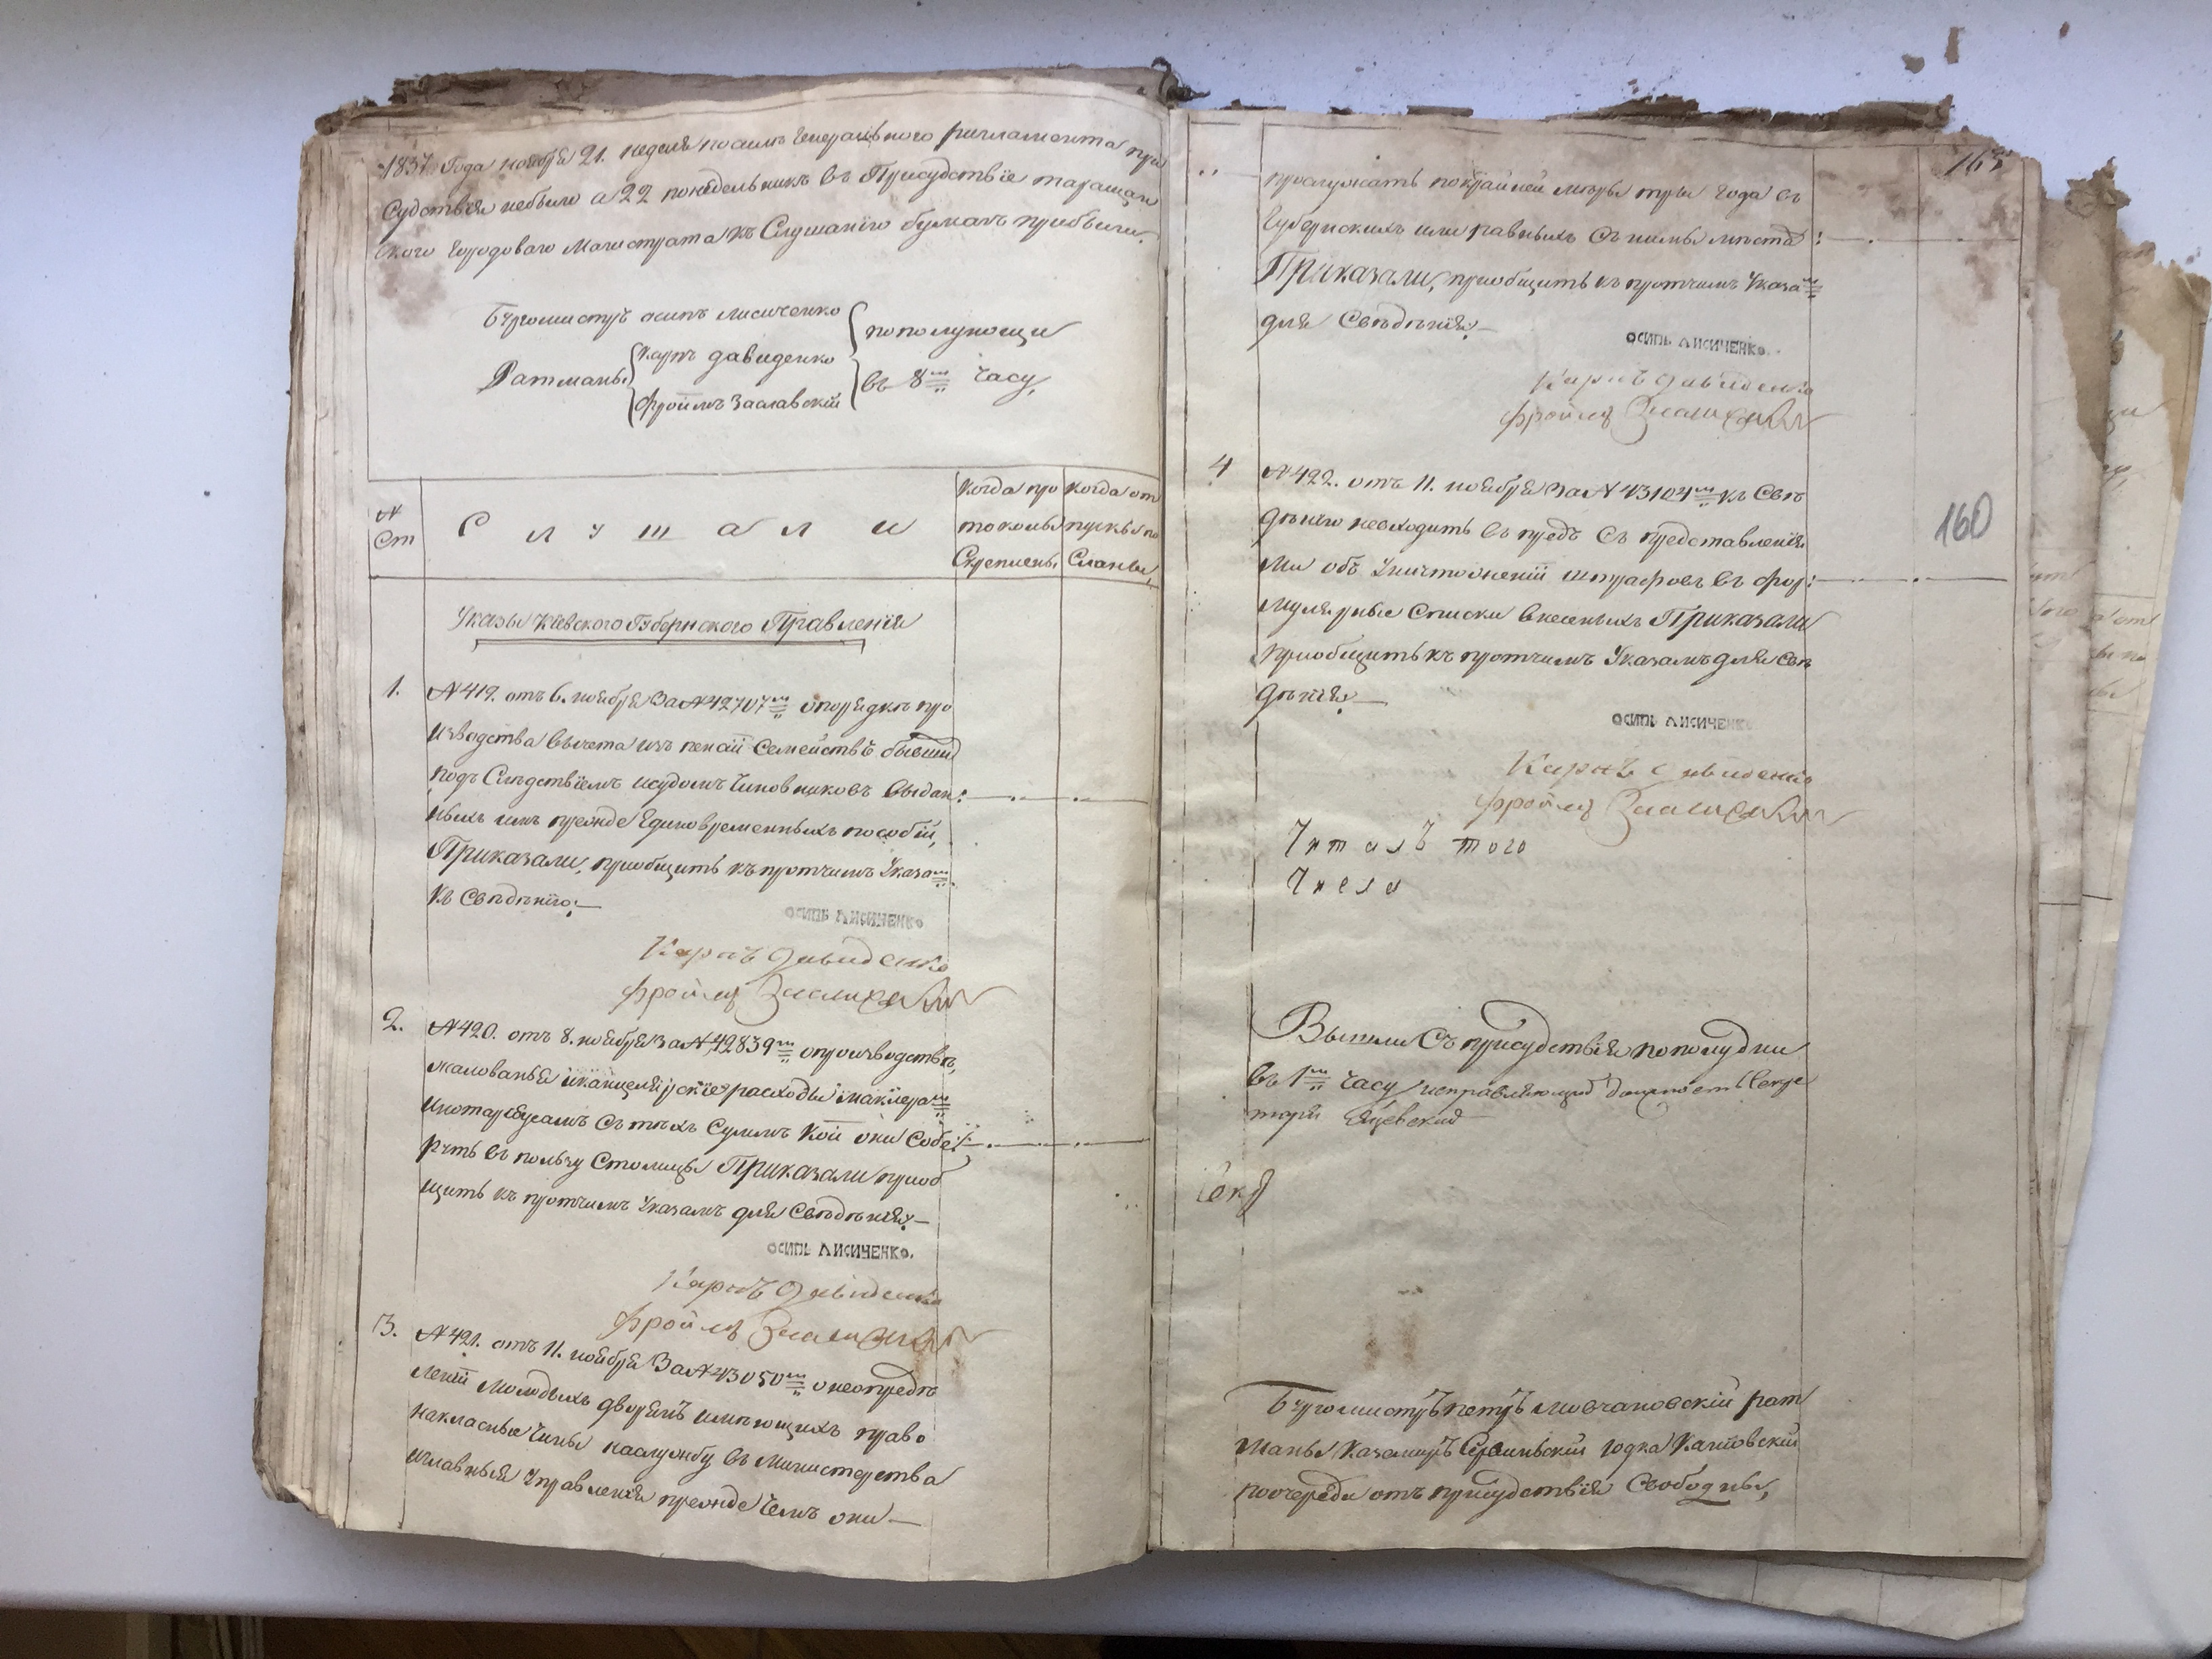 1837 Года ноября 21. неделя посилѣ Генерального регламента при
судствія небыло а 22 понѣдельникъ въ Присудствіе таращан
ского городоваго Магистрата къ Слушанію бумагъ прибыли,
Бургомистръ осипъ лисиченко
пополуночи
Ратманы карпъ давиденко
въ 8мъ часу,
фроимъ Заславскій
№ Ст
Слушали
Когда про токолы Скреплены
Когда от пуски по Сланы
Указы Кіевского Губернского Правленія
1.
№ 419. отъ 6. ноября За № 42707мъ опорядкѣ про
изводства вычета изъ пенсіи семействъ бывши
подъ Слѣдствіемъ исудомъ Чиновниковъ выдан:
ныхъ имъ прежде Единовременныхъ пособій,
Приказали, приобщить къ протчимъ Указам
къ свѣдѣнію;
ОСИПЬ ЛИСИЧЕНКО
Карпъ Давиденко
фроимъ Заславский
2.
№ 420. отъ 8. ноября За № 42839мъ опроизводствѣ,
жалованья иканцелярскіе расходы имаклерам
инотаріусамъ съ тѣхъ Суммъ кои они Собе:
рутъ въ пользу Столицы Приказали приоб
щить къ протчимъ Указамъ для Свѣдѣнія;
ОСИПЬ ЛИСИЧЕНКО.
Карпъ Давиденко
фроимъ Заславский
3.
№ 421. отъ 11. ноября За № 43050мъ онеопредѣ
леніи молодыхъ дворянъ имѣющихъ право
накласные Чины наслужбу въ Министерства
иглавныя Управленія прежде Чемъ они
162
прослужатъ покрайней мѣры тры года въ
Губернскихъ или равныхъ съ ними мѣста:
Приказали, приобщить къ протчимъ Указам
для Свѣдѣнія;
ОСИПЬ ЛИСИЧЕНКО.
Карпъ Давиденко
фроимъ Заславский
4
№ 422. отъ 11. ноября За № 43104мъ къ Свѣ
160
дѣнію невходить въ предъ съ представленія
ми объ Уничтоженіи штрафовъ въ фор:
мулярные Списки внесенныхъ Приказали
приобщить къ протчимъ Указамъ для Свѣ
дѣнія;
ОСИПЬ ЛИСИЧЕНКО
Карпъ Давиденко
фроимъ Заславский
Читалъ того
Числа
Вышли Съ присудствія пополудни
въ 1мъ часу исправляющий должность Секре
таря
Секр
Бургомистръ петръ Мовчановскій рат
маны Казимиръ
поочереди отъ присудствія Свободны,